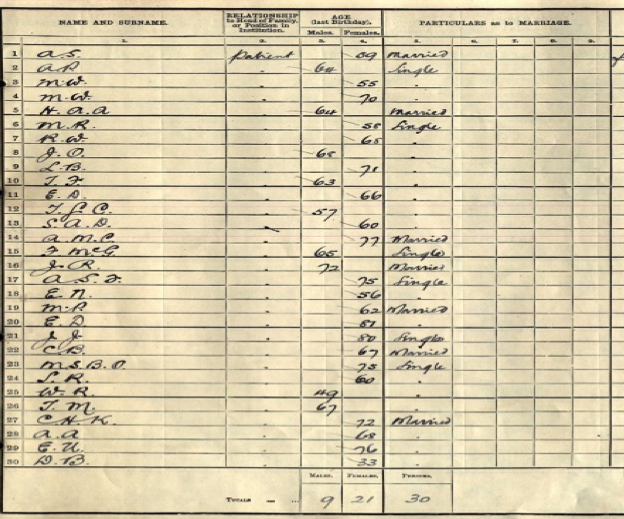 NAME AND SURNAME. RELATIONSHIP to Head of Family, or Position in Institution. AGE (last Birthday). PARTICULARS as to MARRIAGE.
Males. Females.
1. 2. 3. 4. 5. 6. 7. 8. 9.
1 A. S. Patient 59 Married
2 A. P. " 64 Single
3 M. W. " 55 "
4 M. W. " 70 "
5 H. A. A " 64 Married
6 M. R. " 58 Single
7 R. W. " 65 "
8 J. O. " 68 "
9 L. B. " 71 "
10 T. F. " 63 "
11 E. D. " 66 "
12 T. G. C. " 57 "
13 S. A. D. " 60 "
14 A. M. C " 77 Married
15 F. McG. " 65 Single
16 J. R. " 72 Married
17 A. S. F. " 75 Single
18 E. N. " 56 "
19 M. P. " 62 Married
20 E. D " 81 "
21 J. J. " 80 Single
22 C. B. " 67 Married
23 M. S. B. O. " 75 Single
24 S. R. " 60 "
25 W. R. " 49 "
26 T. M. " 67 "
27 C. H. K. " 72 Married
28 A. A " 68 "
29 E. U. " 76 "
30 D. B. " 33 "
MALES. FEMALES. PERSONS.
TOTALS — ... 9 21 30